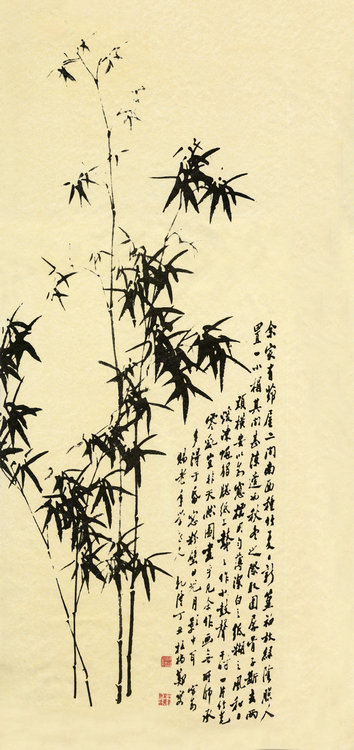 余家有茆屋二间南面種竹夏日新篁初放緑陰照人
置一小榻其中甚凉適也秋冬之際取圍屏骨子断去兩
頭横安以為窗櫺用匀薄潔白之紙糊之風和日
暖凍蝇觸紙作小鼓聲于時一片竹影
零亂豈非天然圖畫乎凡余作画無所師承
多得于紙窗粉壁日光月影中耳
乾隆丁丑板橋鄭燮